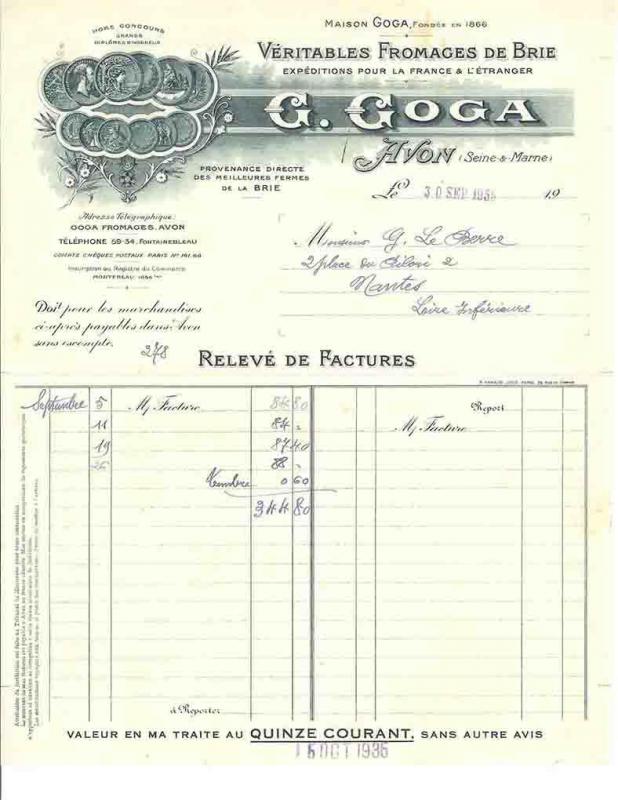 HORS CONCOURS
GRANDS
DIPLÔMES D'HONNEUR
MAISON GOGA, FONDÉE EN 1866
VÉRITABLES FROMAGES DE BRIE
EXPÉDITIONS POUR LA FRANCE & L'ÉTRANGER
G. GOGA
AVON (Seine-&-Marne)
PROVENANCE DIRECTE
DES MEILLEURES FERMES
DE LA BRIE
Le 30 SEP 1935 19
Adresse Télégraphique:
GOGA FROMAGES, AVON
TÉLÉPHONE 59-34, FONTAINEBLEAU
COMPTE CHÈQUES POSTAUX PARIS
Inscription au Registre du Commerce
MONTEREAU
Monsieur G. Le Berre
2 place du Pilori 2
Nantes
Loire Inférieure
Doit pour les marchandises
ci-après payables dans Avon
sans escompte.
278
RELEVÉ DE FACTURES
Septembre 5 M/ Facture 84 80
11 84 "
19 87 40
26 88 "
Timbre 0 60
344 80
Report
M/ Facture
à Reporter
VALEUR EN MA TRAITE AU QUINZE COURANT, SANS AUTRE AVIS
15 OCT 1935